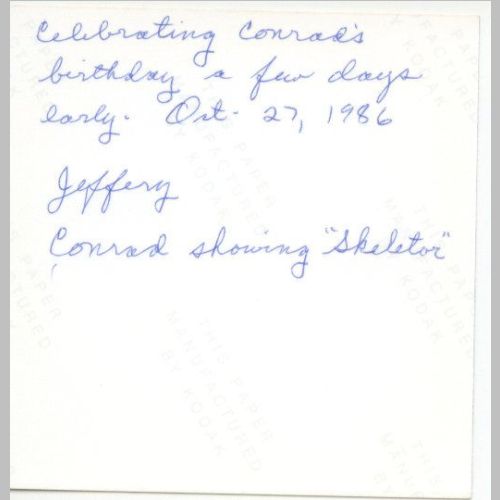 Celebrating Conrad's
birthday a few days
early. Oct. 27, 1986
Jeffery
Conrad showing "Skeletor"
THIS PAPER
MANUFACTURED
BY KODAK